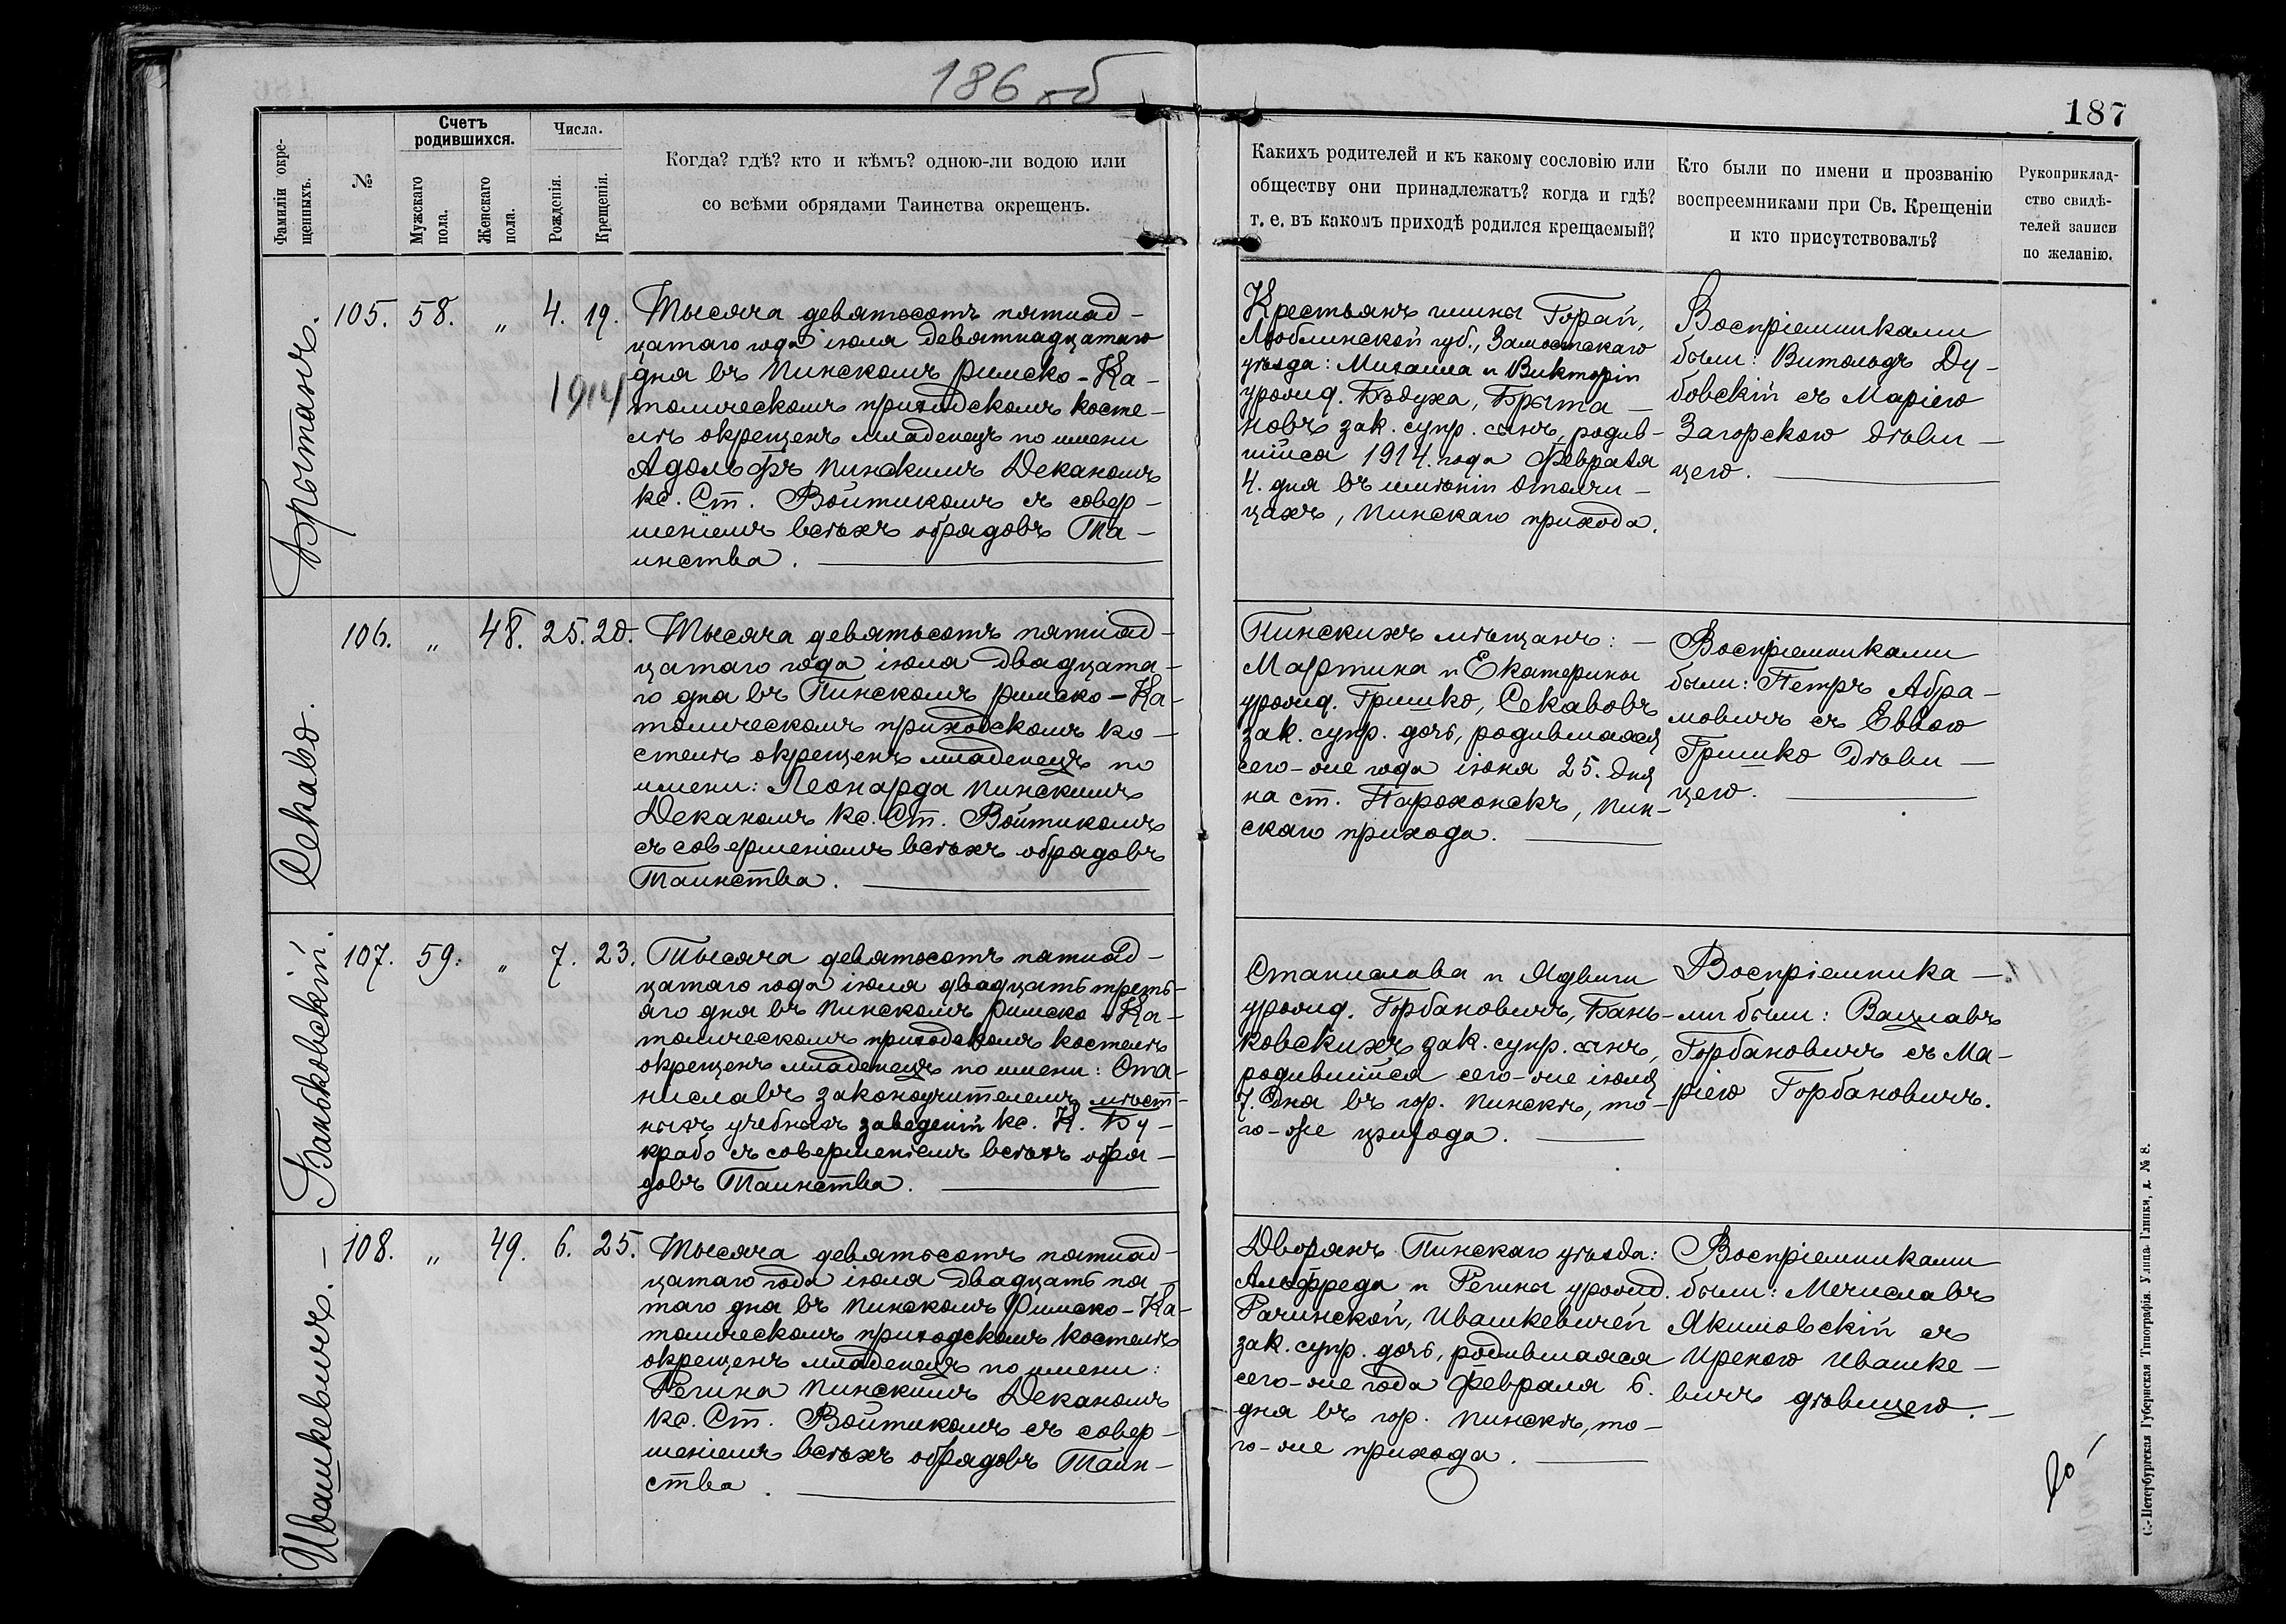 186 об
187
Фамиліи окре-
щенныхъ.
№
Счетъ
родившихся.
Мужскаго
пола.
Женскаго
пола.
Числа.
Рожденія.
Крещенія.
Когда? гдѣ? кто и кѣмъ? одною-ли водою или
со всѣми обрядами Таинства окрещенъ.
Какихъ родителей и къ какому сословію или
обществу они принадлежатъ? когда и гдѣ?
т. е. въ какомъ приходѣ родился крещаемый?
Кто были по имени и прозванію
воспреемниками при Св. Крещеніи
и кто присутствовалъ?
Рукоприклад-
ство свидѣ-
телей записи
по желанію.
Брытанъ.
105. 58. „ 4. 19.
1914
Тысяча девятьсотъ пятнад-
цатаго года іюля девятнадцатаго
дня въ Пинскомъ римско-Ка-
толическомъ приходскомъ косте-
лѣ окрещенъ младенецъ по имени
Адольфъ Пинскимъ Деканомъ
кс. Ст. Войтикомъ съ совер-
шеніемъ всѣхъ обрядовъ Та-
инства.
Крестьянъ гмины Горай,
Люблинской губ., Замостскаго
уѣзда: Михаила и Викторіи
урожд. Бѣдуха, Брыта-
новъ зак. супр. сынъ, родив-
шійся 1914. года Февраля
4. дня въ имѣніи Отолчи-
цахъ, Пинскаго прихода.
Воспріемниками
были: Витольдъ Ду-
бовскій съ Маріею
Загорскою дѣви-
цею.
Секаво.
106. „ 48. 25. 20.
Тысяча девятьсотъ пятнад-
цатаго года іюля двадцата-
го дня въ Пинскомъ римско-Ка-
толическомъ приходскомъ ко-
стелѣ окрещенъ младенецъ по
имени: Леонарда Пинскимъ
Деканомъ кс. Ст. Войтикомъ
съ совершеніемъ всѣхъ обрядовъ
Таинства.
Пинскихъ мѣщанъ: -
Мартина и Екатерины
урожд. Гришко, Секавовъ
зак. супр. дочь, родившаяся
сего-же года іюня 25. дня
на ст. Парохонскъ, Пин-
скаго прихода.
Воспріемниками
были: Петръ Абра-
мовичъ съ Еввою
Гришко дѣви-
цею.
Баньковскій.
107. 59. „ 7. 23.
Тысяча девятьсотъ пятнад-
цатаго года іюля двадцать треть-
яго дня въ Пинскомъ римско-Ка-
толическомъ приходскомъ костелѣ
окрещенъ младенецъ по имени: Ста-
ниславъ законоучителемъ мѣст-
ныхъ учебныхъ заведеній кс. К. Бу-
крабо съ совершеніемъ всѣхъ обря-
довъ Таинства.
Станислава и Ядвиги
урожд. Горбановичъ, Бань-
ковскихъ зак. супр. сынъ,
родившійся сего-же іюля
7. дня въ гор. Пинскѣ, то-
го-же прихода.
Воспріемника-
ми были: Вацлавъ
Горбановичъ съ Ма-
ріею Горбановичъ.
Ивашкевичъ. -
108. „ 49. 6. 25.
Тысяча девятьсотъ пятнад-
цатаго года іюля двадцать пя-
таго дня въ Пинскомъ Римско-Ка-
толическомъ приходскомъ костелѣ
окрещенъ младенецъ по имени:
Регина Пинскимъ Деканомъ
кс. Ст. Войтикомъ съ совер-
шеніемъ всѣхъ обрядовъ Таин-
ства.
Дворянъ Пинскаго уѣзда:
Альфреда и Регины урожд.
Рачинской, Ивашкевичей
зак. супр. дочь, родившаяся
сего-же года февраля 6.
дня въ гор. Пинскѣ, то-
го-же прихода.
Воспріемниками
были: Мечиславъ
Якимовскій съ
Иреною Ивашке-
вичъ дѣвицею. -
С.-Петербургская Губернская Типографія. Улица Глинки, д. № 8.